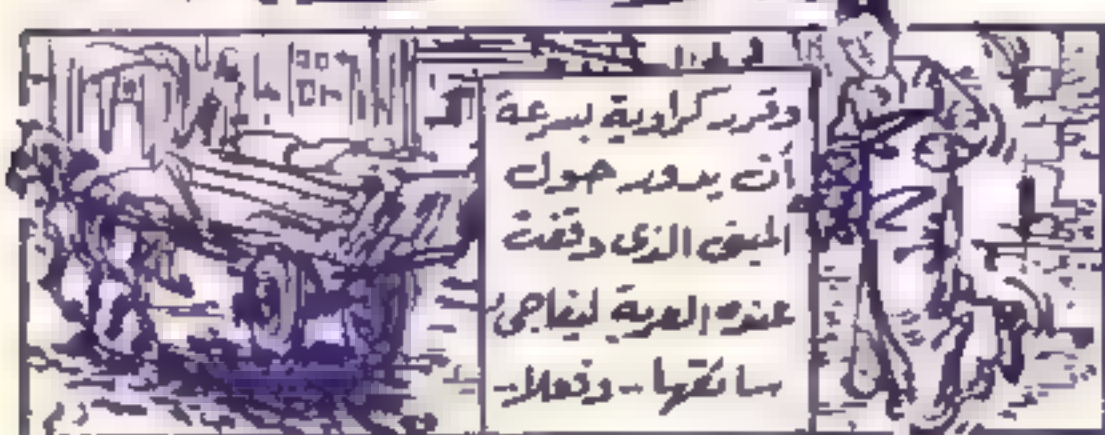 وقرر كراوية بسرعة
أن يدور حول
المبنى الذى وقفت
عنده العربة ليفاجئ
سائقها -- وفعلا --